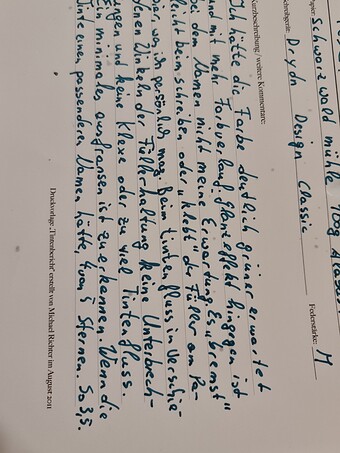 Papier: Schwarzwald mühle 100g
Schreibgerät: Drydn Design Classic Federstärke: M
Kurzbeschreibung / weitere Kommentare:
Ich hätte die Farbe deutlich grüner erwartet
und mit mehr Farbverlauf. Glanzeffekt hingegen ist
bei dem Namen nicht meine Erwartung. Es "bremst"
leicht beim schreiben, oder "klebt" der Füller am Pa-
pier, wo ich persönlich mag. Beim tintenfluss in verschie-
denen Winkeln der Füllerhaltung keine Unterbrech-
ungen und keine Klexe oder zu viel Tintenfluss.
minimales ausfransen ist zu erkennen. Wenn die
Tinte einen passenderen Namen hätte, 4 von 5 Sternen. So 3,5.
Druckvorlage „Tintenbericht" erstellt von Michael Richter im August 2011